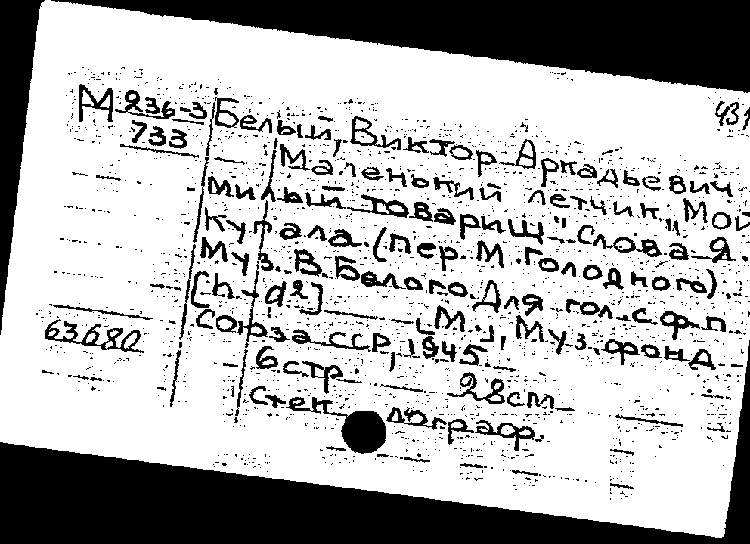 431
М 236-3
733
63680
Белый, Виктор Аркадьевич
Маленький летчик „Мой
милый товарищ" Слова Я.
Купала (пер. М. Голодного).
Муз. В. Белого. Для гол. с ф-п.
[h - d²] [М.], Муз. фонд
Союза ССР, 1945.
6 стр. 28 cm
Стеклограф.